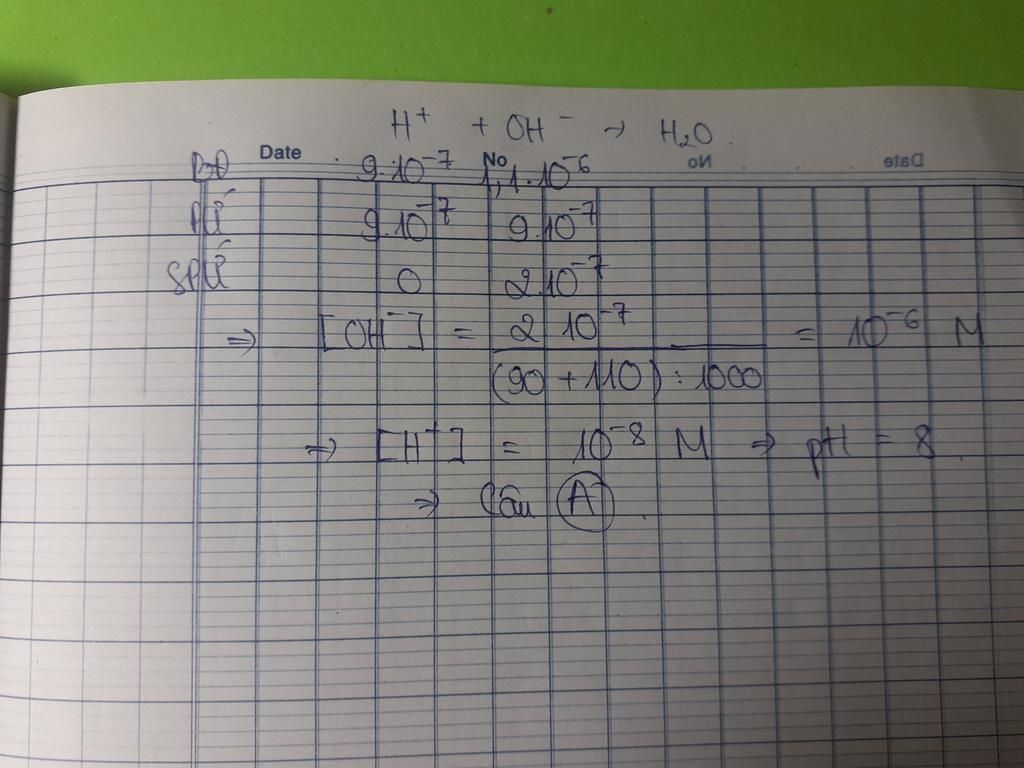 H⁺ + OH⁻ → H₂O.
Date . No No . Date
BĐ 9.10⁻⁷ 1,1.10⁻⁶
PƯ 9.10⁻⁷ 9.10⁻⁷
SPƯ 0 2.10⁻⁷
⇒ [OH⁻] = 2.10⁻⁷ / (90 + 110) : 1000 = 10⁻⁶ M
⇒ [H⁺] = 10⁻⁸ M ⇒ pH = 8
⇒ Câu A.